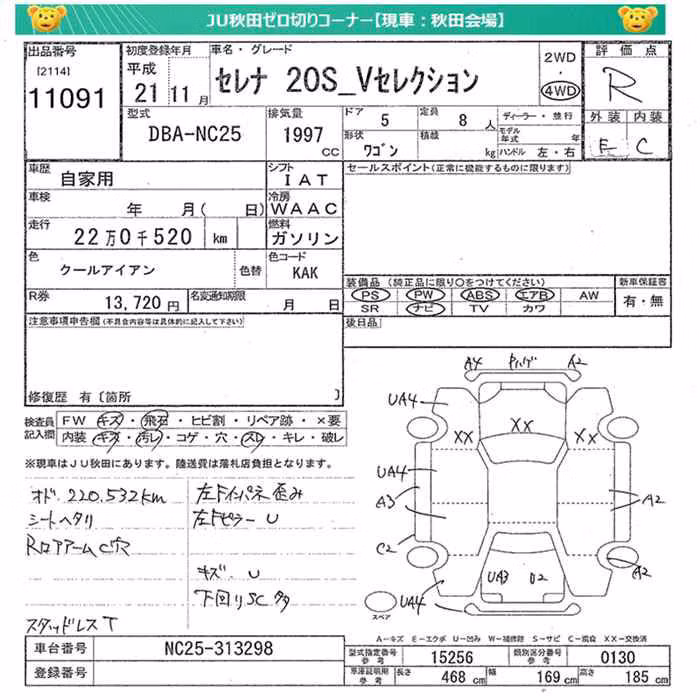 JU秋田ゼロ切りコーナー【現車：秋田会場】
出品番号 初度登録年月 車名・グレード 2WD 評価点
[2114] 平成 セレナ 20S_Vセレクション ・ R
11091 21年11月 4WD
型式 排気量 ドア 5 定員 8人 ディーラー・並行 外装 内装
DBA-NC25 1997cc 形状 ワゴン 積載 kg モデル年式 年 ハンドル 左・右 E C
車歴 自家用 シフト IAT セールスポイント(正常に機能するものに限ります)
車検 年 月( 日) 冷房 WAAC
走行 22万0千520 km 燃料 ガソリン
色 クールアイアン 色替 色コード KAK
装備品(純正品に限り○をつけてください) 新車保証書
R券 13,720円 名変通知期限 月 日 PS PW ABS エアB AW 有・無
SR ナビ TV カワ
注意事項申告欄(不具合内容等は具体的に記入して下さい) 後日品
修復歴 有〔箇所 〕
検査員記入欄 FW キズ・飛石・ヒビ割・リペア跡・×要
内装 キズ・汚レ・コゲ・穴・スレ・キレ・破レ
※現車はJU秋田にあります。陸送費は落札店負担となります。
オド、220,532km 左Fインパネ歪み
シートヘタリ 左Fピラー U
RロアアームC穴
キズ、U
下回りSC多
スタッドレス T
A4 Pハゲ A2
UA4
XX XX XX
UA4
A3 A2
C2
A2
UA3 D2
UA4
スペア
A－キズ E－エクボ U－凹み W－補修跡 S－サビ C－腐食 XX－交換済
車台番号 NC25-313298 型式指定番号 参考 15256 類別区分番号 参考 0130
登録番号 車庫証明用 参考 長さ 468cm 幅 169cm 高さ 185cm